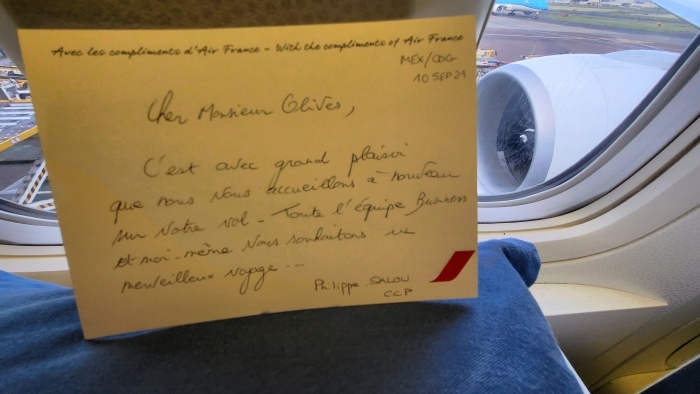 Avec les compliments d'Air France - With the compliments of Air France
MEX/CDG
10 SEP 21
Cher Monsieur Olives,
C'est avec grand plaisir
que nous vous accueillons à nouveau
sur votre vol - Toute l'équipe Business
et moi-même vous souhaitons un
merveilleux voyage ...
Philippe SALOU
CCP